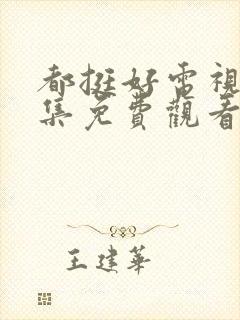 都挺好電視
集免費觀看
王建華